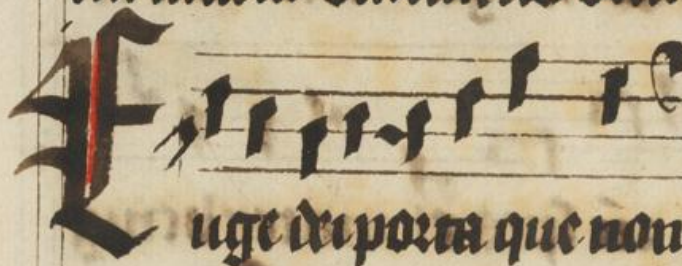 Euge dei porta que non